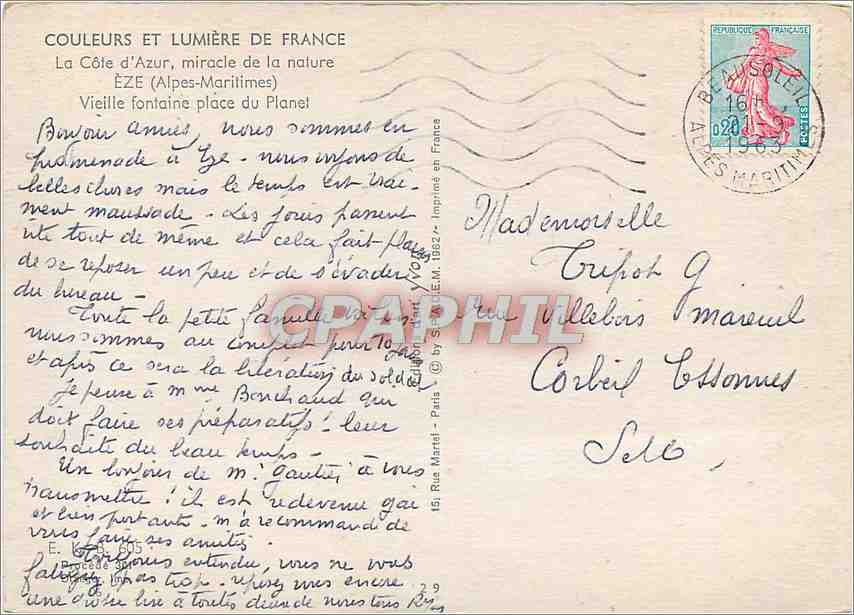 COULEURS ET LUMIÈRE DE FRANCE
La Côte d'Azur, miracle de la nature
ÈZE (Alpes-Maritimes)
Vieille fontaine place du Planet
Bonjour amies, nous sommes en
promenade à Eze - nous voyons de
belles choses mais le temps est vrai-
ment maussade - Les jours passent
vite tout de même et cela fait plaisir
de se reposer un peu et de s'évader
du bureau -
Toute la petite famille
nous sommes au complet pour 10 jours
et après ce sera la libération du soldat
Je pense à Mme Borchaud qui
doit faire ses préparatifs! leur
souhaite du beau temps -
Un bonjour de Mr Gautier à vous
transmettre! il est redevenu gai
et bien portant - m'a recommandé de
vous faire ses amitiés -
E. K. B. 605
Procédé
Toujours entendu, vous ne vous
fatiguez pas trop - reposez vous encore
une grosse bise à toutes deux de nous tous
Éditions d'art Yvon
15, Rue Martel - Paris - © by S.P.A.D.E.M. 1962 - Imprimé en France
REPUBLIQUE FRANÇAISE
0,20
POSTES
BEAUSOLEIL
16H
21-9
1963
ALPES MARITIMES
Mademoiselle
Tripot G
rue Villebois Mareuil
Corbeil Essonnes
S et O
CPAPHIL